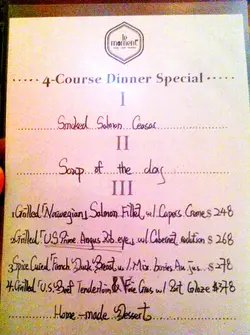 le
moment
4-Course Dinner Special
I
Smoked Salmon Ceasar
II
Soup of the day
III
1. Grilled "Norwegian" Salmon Fillet w/ Capers Creme $248
2. Grilled "US Prime Angus Rib eye" w/ Cabernet reduction $268
3. Spice Cured "French" Duck Breast w/ Mix berries Au jus $278
4. Grilled "U.S." Beef Tenderloin & Foie Gras w/ Port Glaze $378
Home-made Dessert